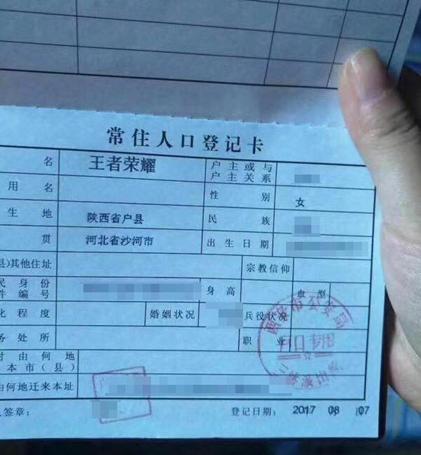 常住人口登记卡
名 王者荣耀 户主或与户主关系
用名 性别 女
生地 陕西省户县 民族
贯 河北省沙河市 出生日期
县)其他住址 宗教信仰
民身份件编号 身高 血型
化程度 婚姻状况 兵役状况
务处所 职业
时由何地
本市(县)
由何地迁来本址
人签章： 登记日期： 2017 08 07